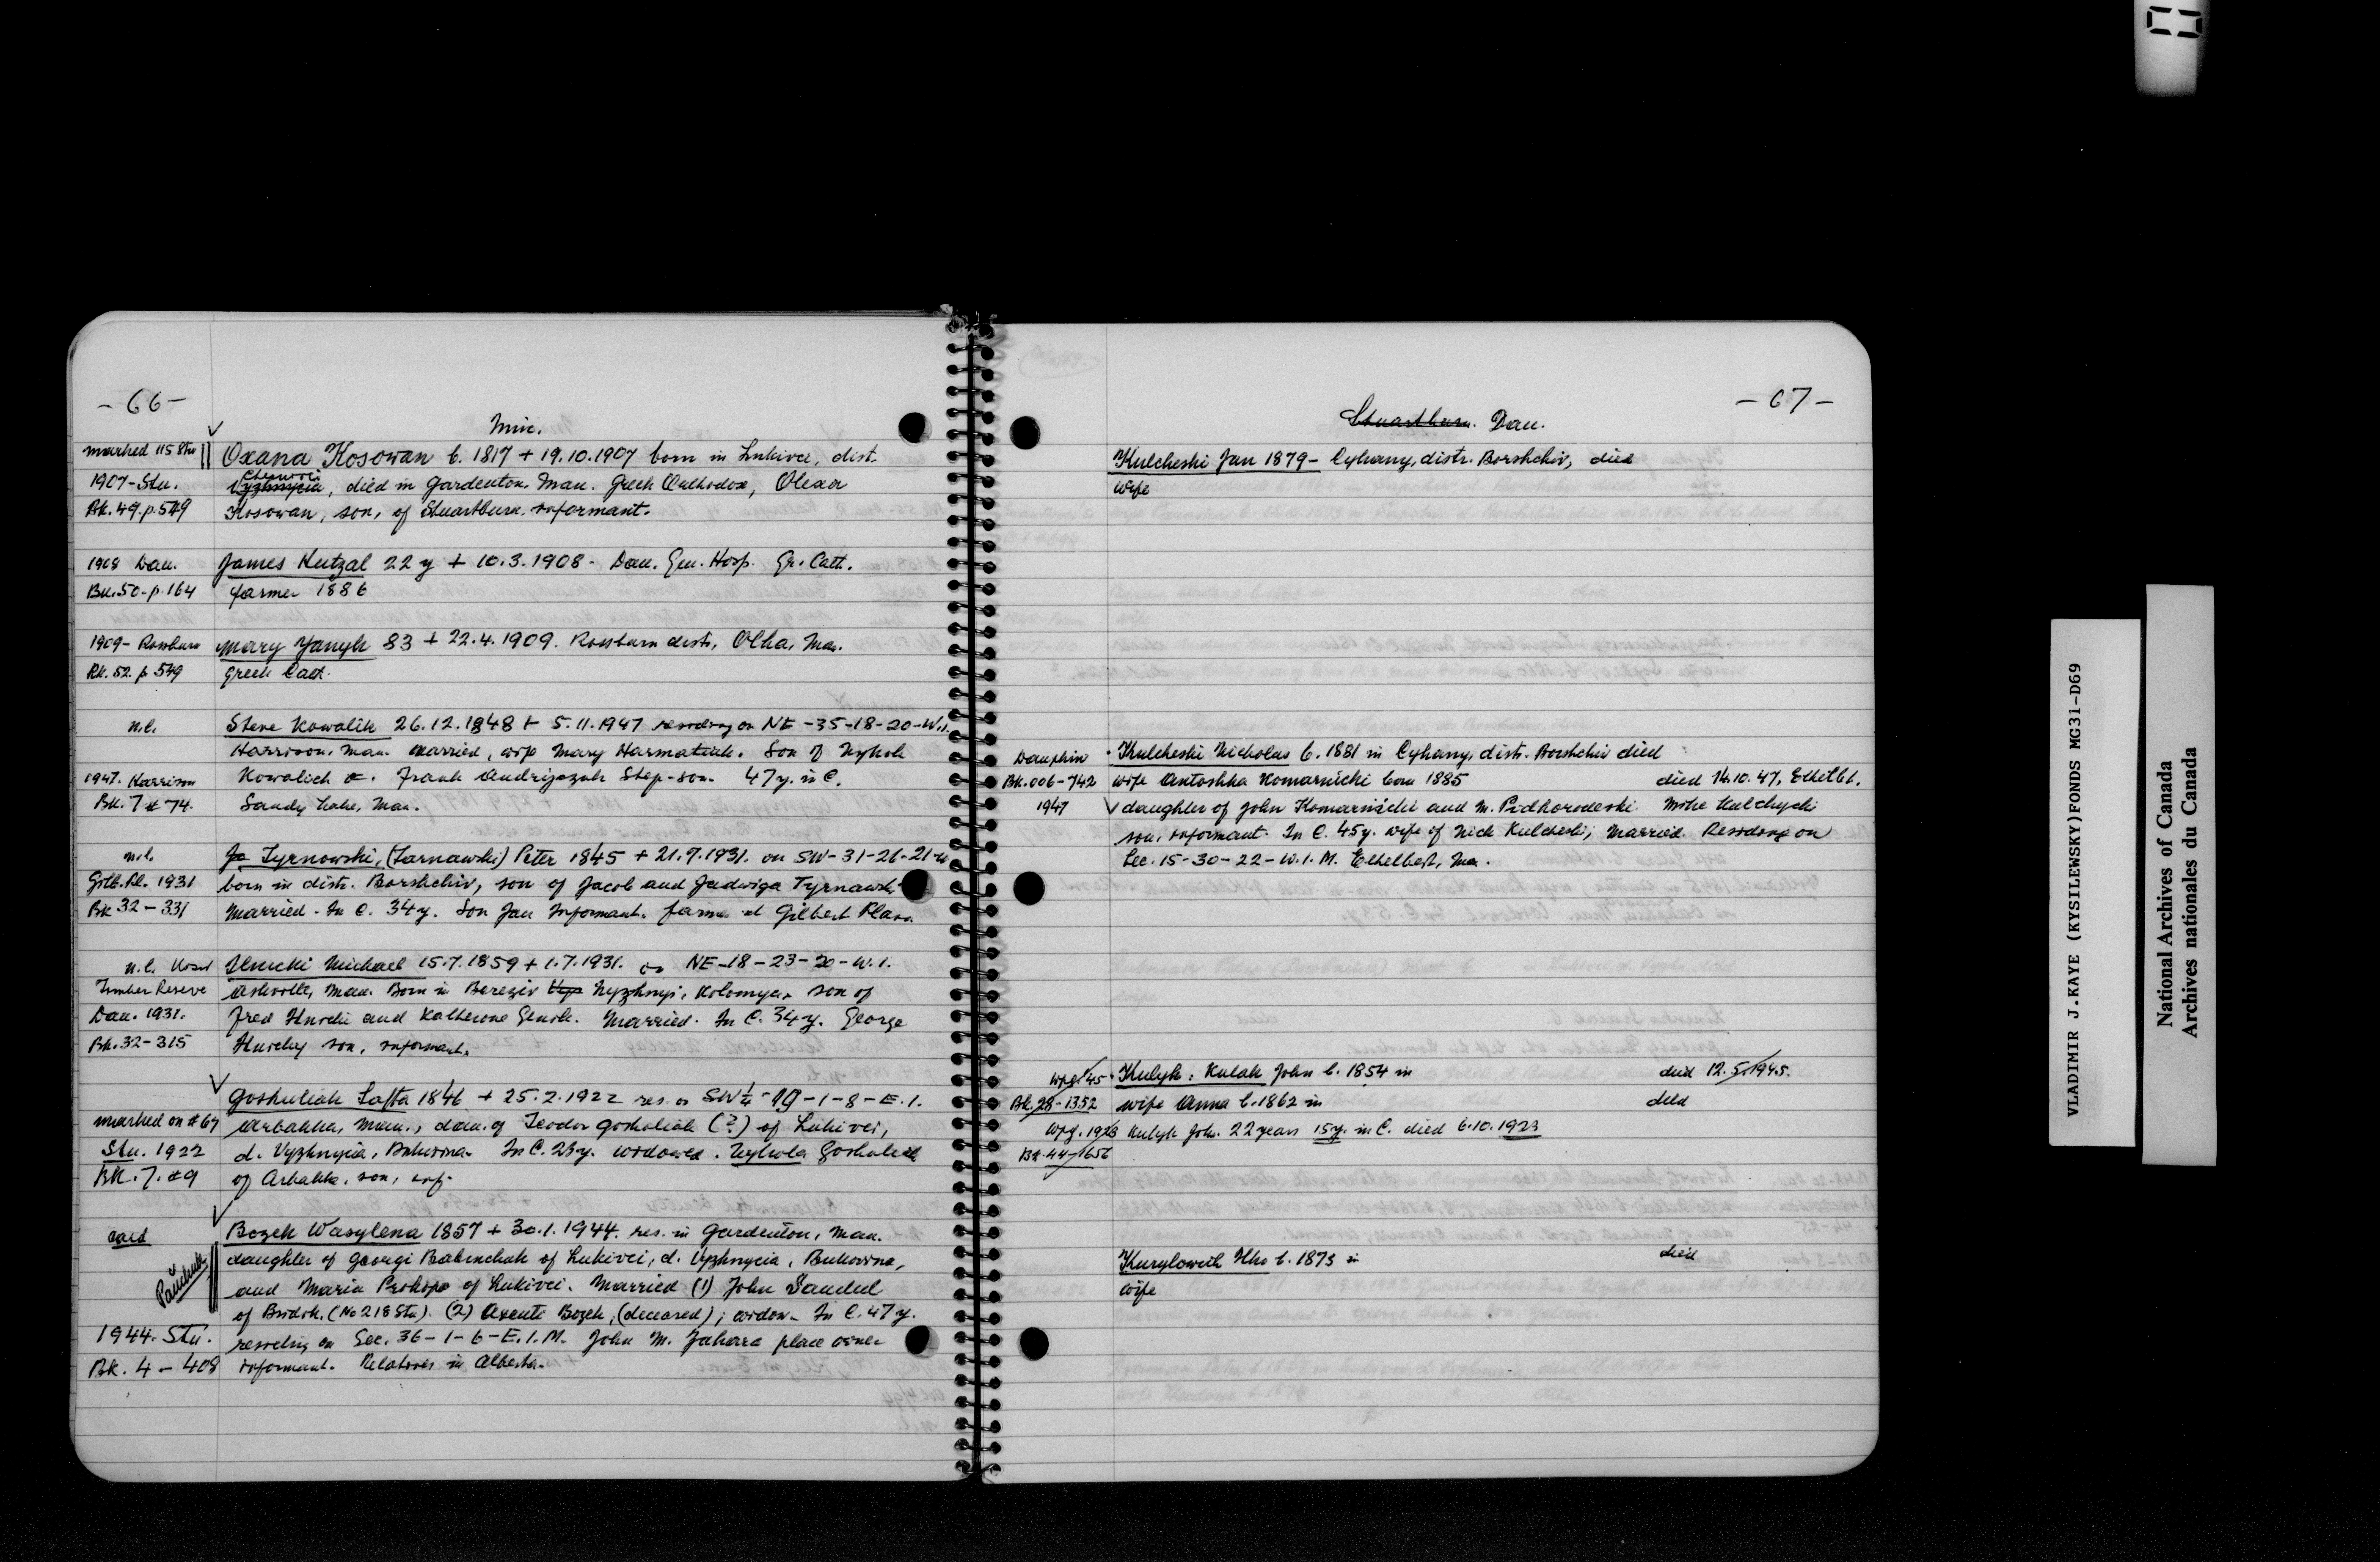 - 66 -
Misc.
marked 115 Stu Oxana Kosowan b. 1817 + 19.10.1907 born in Lukivci, dist.
1907-Stu. Vyzhnycia, died in Gardenton, Man. Greek Orthodox, Olexa
Bk. 49. p. 549 Kosowan, son, of Stuartburn. informant.
1908 Dau. James Kutzal 22 y + 10.3.1908 - Dau. Gen. Hosp. Gr. Cath.
Bk. 50-p. 164 farmer 1886
1909- Rossburn Mary Yanyk 83 + 22.4.1909. Rossburn distr. Olha, Man.
Bk. 52. p. 549 Greek Cath.
n.l. Steve Kowalik 26.12.1848 + 5.11.1947 residing on NE-35-18-20-W.1.
Harrison, Man. married, wife Mary Harmatiuk. Son of Nykola
1947. Harrison Kowalich. Frank Andrijczuk Step-son. 47 y. in C.
Bk. 7 # 74. Sandy Lake, Man.
n.l. Ja Tyrnowski, (Tarnawski) Peter 1845 + 21.7.1931. on SW-31-26-21-W
Gilb. Pl. 1931 born in distr. Borshchiv, son of Jacob and Jadwiga Tyrnawski
Bk 32-331 Married. In C. 34 y. Son Jan Informant. farmer at Gilbert Plains
n.l. Michael 15.7.1859 + 1.7.1931. on NE-18-23-20-W.1.
Timber Reserve Ashville, Man. Born in Bereziv Nyzhnyi, Kolomyea, son of
Dau. 1931. Fred and Katherine Genik. Married. In C. 34 y. George
Bk. 32-315 son, informant.
Goshuliak Tafta 1846 + 25.2.1922 res. on SW 1/4 - 19-1-8-E.1.
marked on # 67 Arbakka, Man., dau. of Teodor Goshuliak (?) of Lukivci,
Stu. 1922 d. Vyzhnycia, Bukovina. In C. 23 y. widowed. Nykola Goshuliak
Bk. 7. #9 of Arbakka, son, inf.
card Bozek Wasylena 1857 + 30.1.1944. res. in Gardenton, Man.
daughter of Georgi Babinchuk of Lukivci, d. Vyzhnycia, Bukovina,
and Maria Prokopo of Lukivci. Married (1) John Sandul
of Bridok. (No 218 Stu). (2) Axente Bozek, (deceased); widow. In C. 47 y.
1944. Stu. residing on Sec. 36-1-6-E.1.M. John M. Zahara place owner
Bk. 4 - 408 informant. Relatives in Alberta.
- 67 -
Stuartburn. Dau.
Kulcheski Jan 1879 - Cyhany, distr. Borshchiv, died
wife
Dauphin Kulcheski Nicholas b. 1881 in Cyhany, distr. Borshchiv died
Bk. 006-742 wife Antoshka Komarnicki born 1885 died 14.10.47, Ethelbt.
1947 daughter of John Komarnicki and M. Pidhorodeski Mike Kulchycki
son, informant. In C. 45 y. wife of Nick Kulcheski; Married. Residing on
Sec. 15-30-22-W.1.M. Ethelbert, Man.
Wpg. 45 Kulyk: Kulak John b. 1854 in died 12.5.1945.
Bk. 28-1352 wife Anna b. 1862 in died
Wpg. 1923 Kulyk John. 22 years 15 y. in C. died 6.10.1923
Bk. 44-1656
Kurylowich Ilko b. 1873 in died
wife
VLADIMIR J.KAYE (KYSILEWSKY)FONDS MG31-D69
National Archives of Canada
Archives nationales du Canada